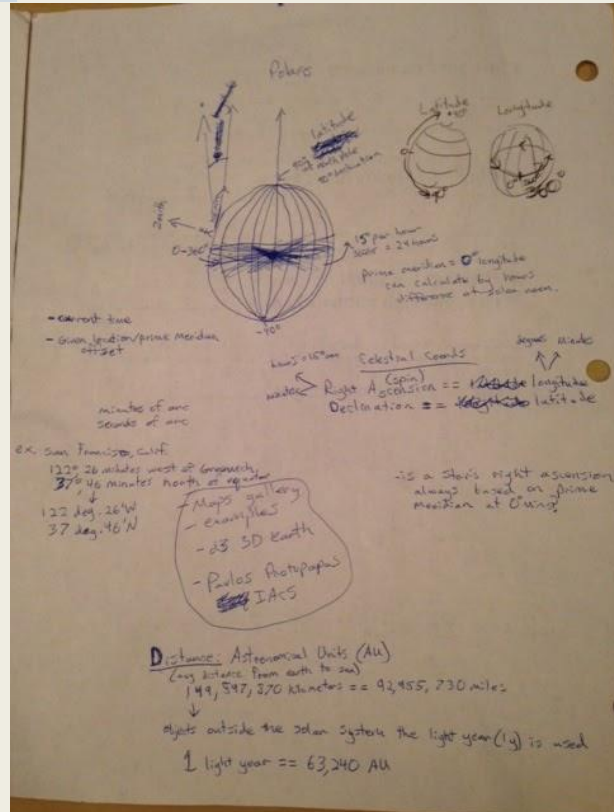 Polaris
Latitude
+90°
Longitude
360°
latitude
at north pole
90° declination
Zenith
0-360°
15° per hour
360° = 24 hours
-90°
prime meridian = 0° longitude
can calculate by hours
difference at solar noon.
- current time
- Given location/prime meridian
offset
degrees minutes
Celestial Coords
hours = 15°
minutes
(spin)
Right Ascension == longitude
Declination == latitude
minutes of arc
seconds of arc
ex. San Francisco, Calif.
122° 26 minutes west of Greenwich,
37° 46 minutes north of equator
122 deg. 26'W
37 deg. 46'N
- Maps gallery
- examples
- d3 3D earth
- Pavlos Protopapas
IACS
- is a star's right ascension
always based on prime
meridian at 0
Distance: Astronomical Units (AU)
(avg distance from earth to sun)
149,597,870 kilometers == 92,955,730 miles
objects outside the solar system the light year (ly) is used
1 light year == 63,240 AU